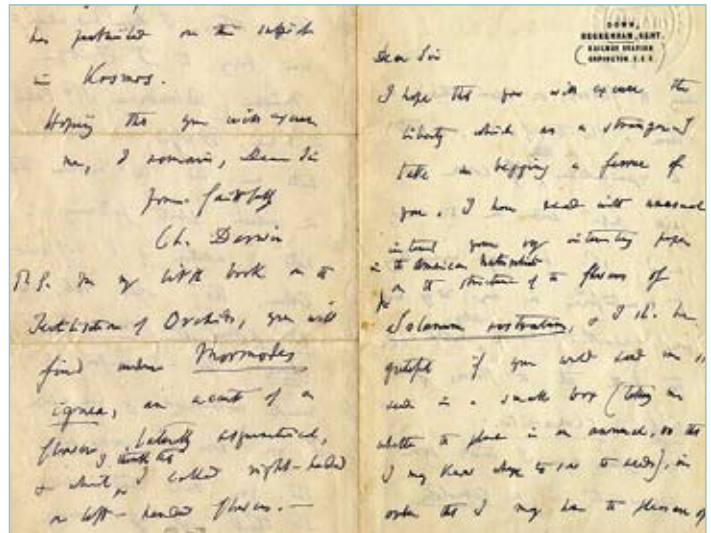 has published on the subject
in Kosmos.
Hoping that you will excuse
me, I remain, Dear Sir
Yours faithfully
Ch. Darwin
P.S. In my little book on the
Fertilisation of Orchids, you will
find under Mormodes
ignea, an account of a
flower laterally asymmetrical,
I think that
& which I called right-handed
or left-handed flowers.—
DOWN,
BECKENHAM, KENT.
(RAILWAY STATION
ORPINGTON. S.E.R.)
Dear Sir
I hope that you will excuse the
liberty which as a stranger I
take in begging a favour of
you. I have read with unusual
interest your very interesting paper
in the American Naturalist
on the structure of the flowers of
Solanum rostratum, & I sh. be
grateful if you would send me
seed in a small box (telling me
whether the plant is an annual, so that
I may know when to sow the seeds), in
order that I may have the pleasure of